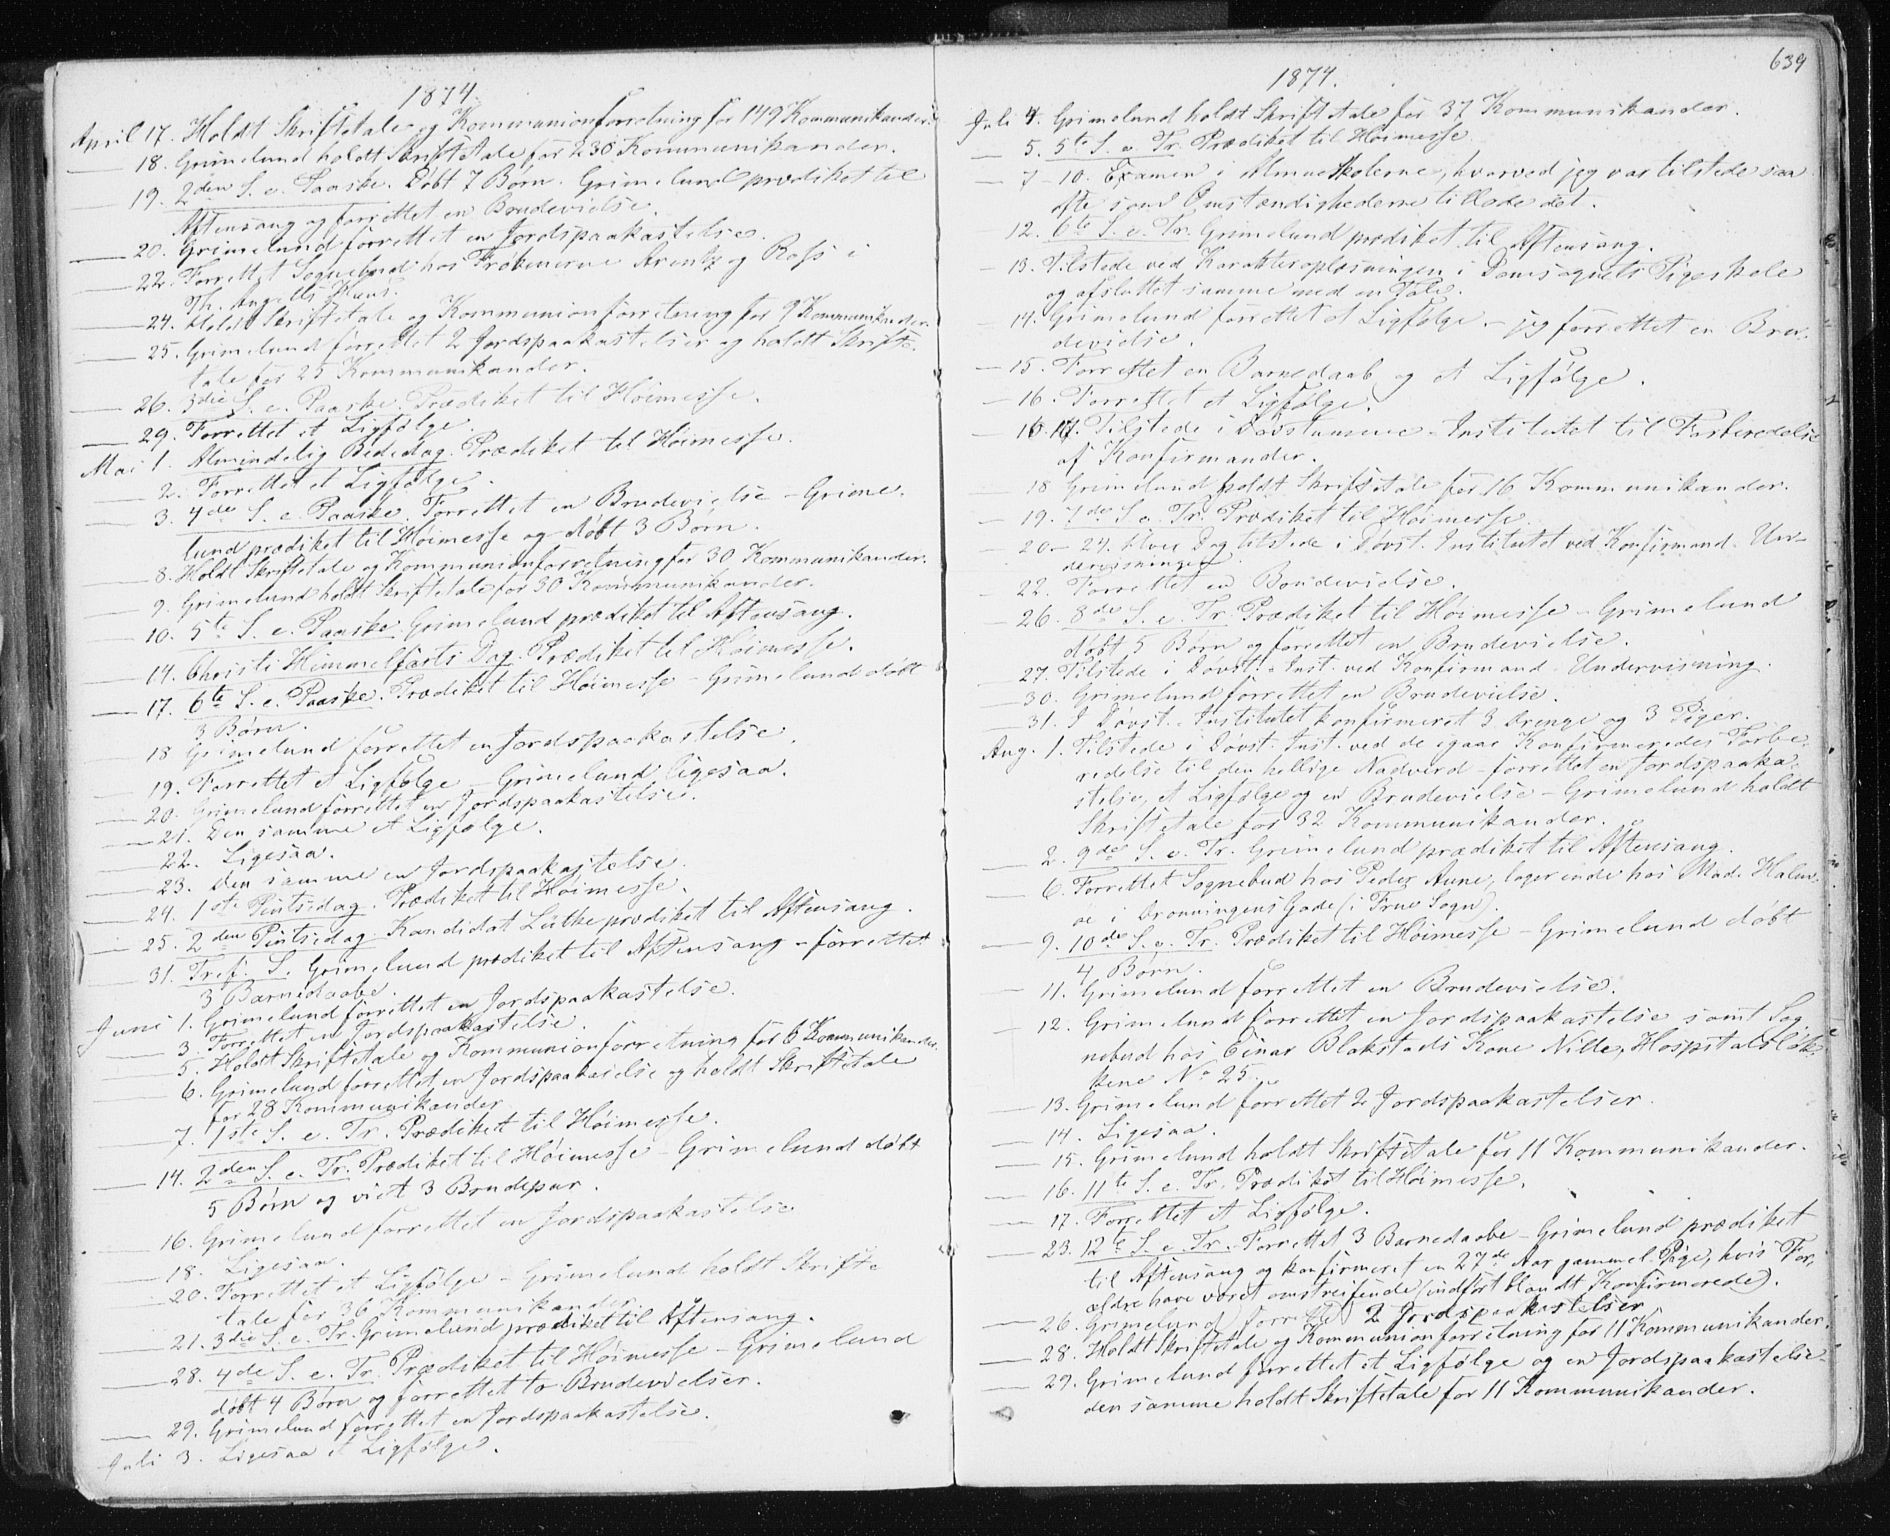 1874.
April 17. Holdt Skriftetale og Kommunionforretning for 149 Kommunikander.
— 18. Grimelund holdt Skriftetale for 230 Kommunikander.
— 19. 2den S. e. Paaske. Døbt 7 Børn. Grimelund prædiket til
Aftensang og forrettet en Brudevielse.
— 20. Grimelund forrettet en Jordspaakastelse.
— 22. Forrettet Sognebud hos Frøknerne Arentz og Ross i
Th. Angells Huus.
— 24. Holdt Skriftetale og Kommunionforretning for 9 Kommunikander.
— 25. Grimelund forrettet 2 Jordspaakastelser og holdt Skrifte-
tale for 25 Kommunikander.
— 26. 3die S. e. Paaske. Prædiket til Høimesse.
— 29. Forrettet et Ligfølge.
Mai 1. Almindelig Bededag. Prædiket til Høimesse.
— 2. Forrettet et Ligfølge.
— 3. 4de S. e. Paaske. Forrettet en Brudevielse – Grime-
lund prædiket til Høimesse og døbt 3 Børn.
— 8. Holdt Skriftetale og Kommunionforretning for 30 Kommunikander.
— 9. Grimelund holdt Skriftetale for 30 Kommunikander.
— 10. 5te S. e. Paaske. Grimelund prædiket til Aftensang.
— 14. Christi Himmelfarts Dag. Prædiket til Høimesse.
— 17. 6te S. e. Paaske. Prædiket til Høimesse – Grimelund døbt
3 Børn.
— 18 Grimelund forrettet en Jordspaakastelse.
— 19. Forrettet et Ligfølge – Grimelund ligesaa.
— 20. Grimelund forrettet en Jordspaakastelse.
— 21. Den samme et Ligfølge.
— 22. Ligesaa.
— 23. Den samme en Jordspaakastelse.
— 24. 1ste Pintsedag. Prædiket til Høimesse.
— 25. 2den Pintsedag. Kandidat Lütke prædiket til Aftensang.
— 31. Tref. S. Grimelund prædiket til Aftensang – forrettet
3 Barnedaabe.
Juni 1. Grimelund forrettet en Jordspaakastelse.
— 3. Forrettet en Jordspaakastelse.
— 5. Holdt Skriftetale og Kommunionforretning for 6 Kommunikander.
— 6. Grimelund forrettet en Jordspaakastelse og holdt Skriftetale
for 28 Kommunikander
— 7. 1ste S. e. Tr. Prædiket til Høimesse.
— 14. 2den S. e. Tr. Prædiket til Høimesse – Grimelund døbt
5 Børn og viet 3 Brudepar.
— 16. Grimelund forrettet en Jordspaakastelse
— 18. Ligesaa.
— 20. Forrettet et Ligfølge – Grimelund holdt Skrifte-
tale for 36 Kommunikander
— 21. 3die S. e. Tr. Grimelund prædiket til Aftensang.
— 28. 4de S. e. Tr. Prædiket til Høimesse – Grimelund
døbt 4 Børn og forrettet to Brudevielser.
— 29. Grimelund forrettet en Jordspaakastelse.
Juli 3. Ligesaa et Ligfølge.
639
1874.
Juli 4. Grimelund holdt Skriftetale for 37 Kommunikander.
— 5. 5te S. e. Tr. Prædiket til Høimesse.
— 7–10. Examen i Almueskolerne, hvorved jeg var tilstede saa
ofte som Omstændighederne tillode det.
— 12. 6te S. e. Tr. Grimelund prædiket til Aftensang.
— 13. Tilstede ved Karakteroplæsningen i Domsognets Pigeskole
og afsluttet samme med en Tale.
— 14. Grimelund forrettet et Ligfølge – jeg forrettet en Bru-
devielse.
— 15. Forrettet en Barnedaab og et Ligfølge.
— 16. Forrettet et Ligfølge.
— 16. 17. Tilstede i Døvstumme-Institutet til Forberedelse
af Konfirmander.
— 18 Grimelund holdt Skriftetale for 16 Kommunikander.
— 19. 7de S. e. Tr. Prædiket til Høimesse.
— 20–24. Hver Dag tilstede i Døvst. Institutet ved Konfirmand. Un-
dervisningen.
— 22. Forrettet en Brudevielse.
— 26. 8de S. e. Tr. Prædiket til Høimesse – Grimelund
døbt 5 Børn og forrettet en Brudevielse.
— 27. Tilstede i Døvst.-Inst. ved Konfirmand. Undervisning.
— 30. Grimelund forrettet en Brudevielse.
— 31. I Døvst.-Institutet konfirmeret 3 Drenge og 3 Piger.
Aug. 1. Tilstede i Døvst. Inst. ved de igaar Konfirmeredes Forbe-
redelse til den hellige Nadverd – forrettet en Jordspaaka-
stelse, et Ligfølge og en Brudevielse – Grimelund holdt
Skriftetale for 32 Kommunikander.
— 2. 9de S. e. Tr. Grimelund prædiket til Aftensang.
— 6. Forrettet Sognebud hos Peder Aune, logerende hos Mad. Halm-
oe i Dronningens Gade (i Frue Sogn).
— 9. 10de S. e. Tr. Prædiket til Høimesse – Grimelund døbt
4 Børn.
— 11. Grimelund forrettet en Brudevielse.
— 12. Grimelund forrettet en Jordspaakastelse samt Sog-
nebud hos Einar Blakstads Kone Nille, Hospitalsløk-
kene No 25.
— 13. Grimelund forrettet 2 Jordspaakastelser.
— 14. Ligesaa.
— 15. Grimelund holdt Skriftetale for 11 Kommunikander.
— 16. 11te S. e. Tr. Prædiket til Høimesse.
— 17. Forrettet et Ligfølge.
— 23. 12te S. e. Tr. Forrettet 3 Barnedaabe – Grimelund prædiket
til Aftensang og konfirmeret en 27de Aar gammel Pige, hvis For-
ældre have været omstreifende (indført blandt Konfirmerede).
— 26. Grimelund forrettet 2 Jordspaakastelser.
— 28. Holdt Skriftetale og Kommunionforretning for 11 Kommunikander.
— 29. Grimelund forrettet et Ligfølge og en Jordspaakastelse
den samme holdt Skriftetale for 11 Kommunikander.